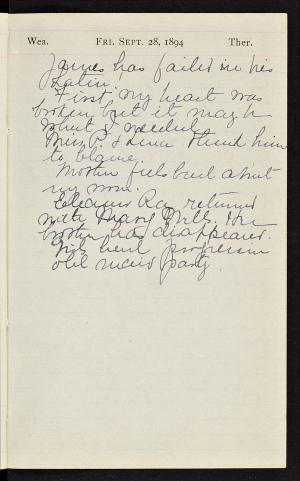 Wea. FRI. SEPT. 28, 1894 Ther.
James has failed in his
Latin.
First my heart was
broken but it may be
what I needed.
Miss P. & Lena think him
to blame.
Mother feels bad about
my
Eleanor Ray returned
with Mary Mills. Her
brother has disappeared.
Girls held progressive
old maid party.